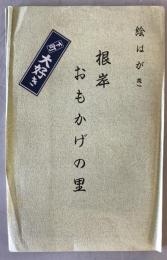 絵はがき
根岸
おもかげの里
大好き